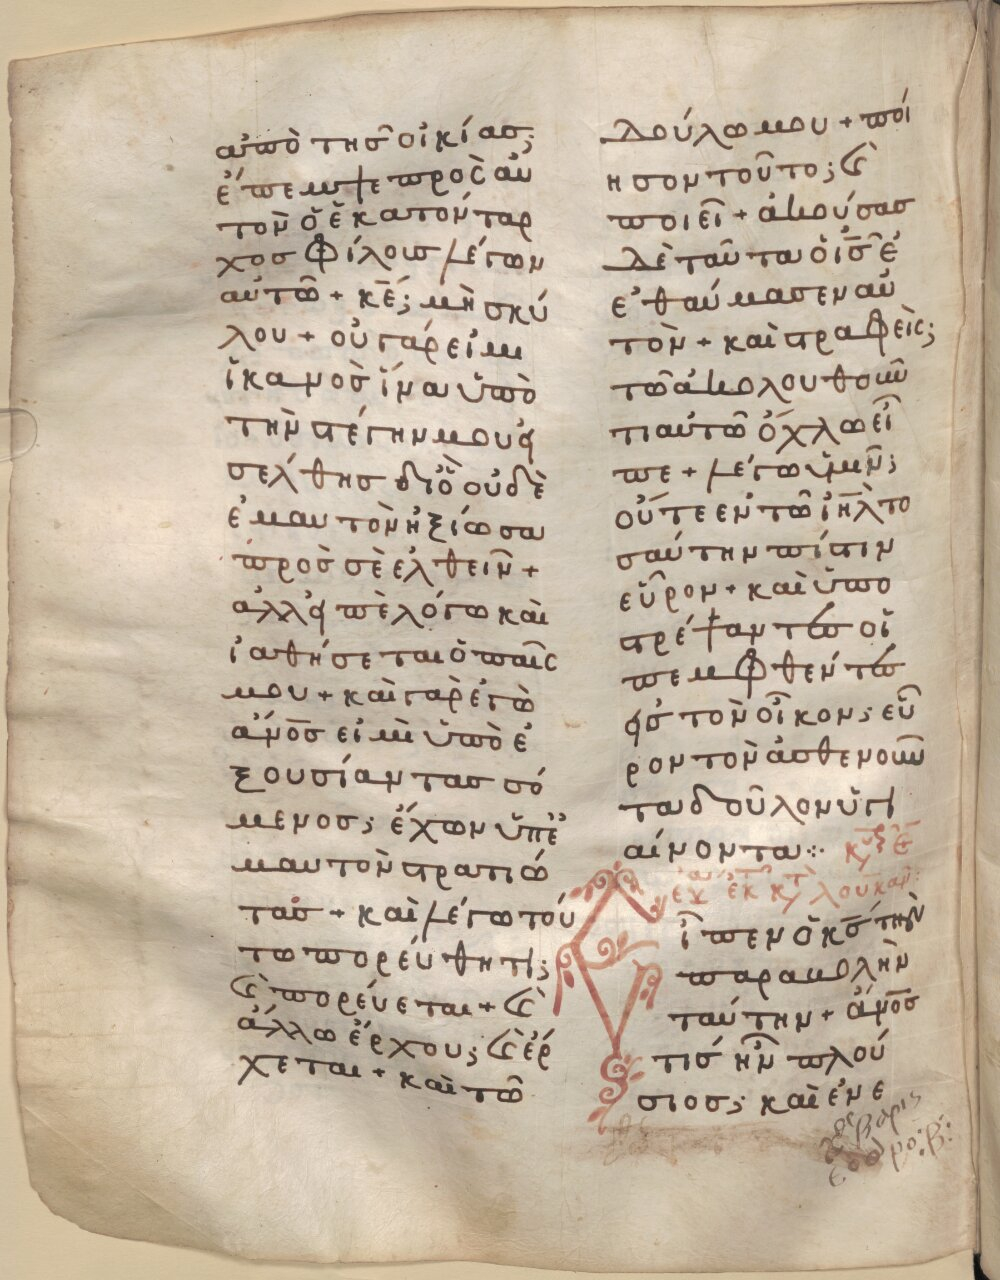 ἀπὸ τῆσ οἰκίασ;
ἔπεμψε προσ αὐ
τὸν ὁ ἑκατονταρ
χοσ φίλουσ λέγων
αὐτῶ + κε̅; μὴ σκύ
λου + οὐ γάρ εἰμι
ἱκανὸσ ἵνα ὑπὸ
τὴν στέγην μου εἰ
σέλθησ διὸ οὐδὲ
ἐμαυτὸν ἠξίωσα
πρὸσ σὲ ἐλθεῖν +
ἀλλὰ εἰπὲ λόγω καὶ
ἰαθήσεται ὁ παῖς
μου + καὶ γὰρ ἐγὼ
ἄνο̅σ εἰμὶ ὑπὸ ἐ
ξουσίαν τασσό
μενοσ; ἔχων ὑπ' ἐ
μαυτὸν στρατιώ
τασ + καὶ λέγω τού
τω πορεύθητι;
ϗ πορεύεται + ϗ
ἄλλω ἔρχου; ϗ ἔρ
χεται + καὶ τῶ
δούλω μου + ποί
ησον τοῦτο; ϗ
ποιεῖ + ἀκούσασ
δὲ ταῦτα ὁ ισ̅ ἐ
ἐθαύμασεν αὐ
τὸν + καὶ στραφεὶς;
τῶ ἀκολουθοῦν
τι αὐτῶ ὄχλω εἶ
πε + λέγω ὑμῖν;
οὔτε ἐν τῶ ιηλ̅ το
σαύτην πίστιν
εὗρον + καὶ ὑπο
στρέψαντεσ οἱ
πεμφθέντεσ
εἰσ τὸν οἶκον; εὗ
ρον τὸν ἀσθενοῦν
τα δοῦλον ὑγι
αίνοντα:·
εἶπεν ὁ κσ̅ τὴν
παραβολὴν
ταύτην + ἄνο̅σ
τισ ἦν πλού
σιοσ; καὶ ἐνε